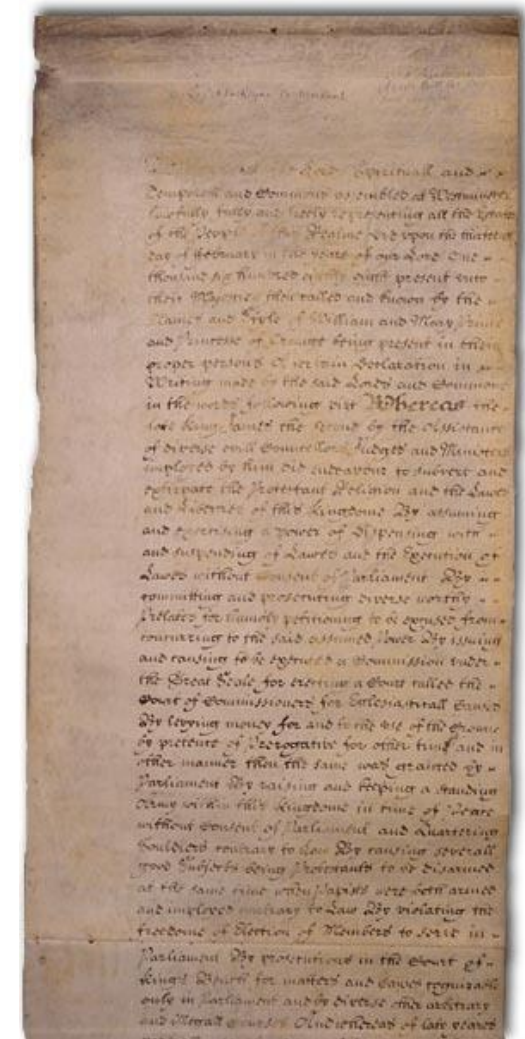 Lords Spirituall and
Temporall and Commons assembled at Westminster
lawfully fully and freely representing all the Estates
of the People of this Realme did upon the thirteenth
day of February in the yeare of our Lord One
thousand six hundred eighty eight present unto
their Majesties then called and known by the
Names and Style of William and Mary Prince
and Princesse of Orange being present in their
proper persons A certain Declaration in
Writing made by the said Lords and Commons
in the words following vizt Whereas the
late King James the second by the Assistance
of diverse evill Councellors Judges and Ministers
imployed by him did endeavour to subvert and
extirpate the Protestant Religion and the Lawes
and Liberties of this Kingdome By assuming
and exercising a power of Dispensing with
and suspending of Lawes and the Execution of
Lawes without Consent of Parliament By
committing and prosecuting diverse worthy
Prelates for humbly petitioning to be excused from
concurring to the said assumed Power By issuing
and causing to be executed a Commission under
the Great Seale for erecting a Court called the
Court of Commissioners for Ecclesiasticall Causes
By levying money for and to the use of the Crowne
by pretence of Prerogative for other time and in
other manner then the same was granted by
Parliament By raising and keeping a standing
Army within this Kingdome in time of Peace
without Consent of Parliament and Quartering
Souldiers contrary to Law By causing severall
good Subjects being Protestants to be disarmed
at the same time when Papists were both armed
and imployed contrary to Law By violating the
freedome of Election of Members to serve in
Parliament By prosecutions in the Court of
Kings Bench for matters and Causes cognizable
only in Parliament and by diverse other arbitrary
and illegall courses And whereas of late yeares